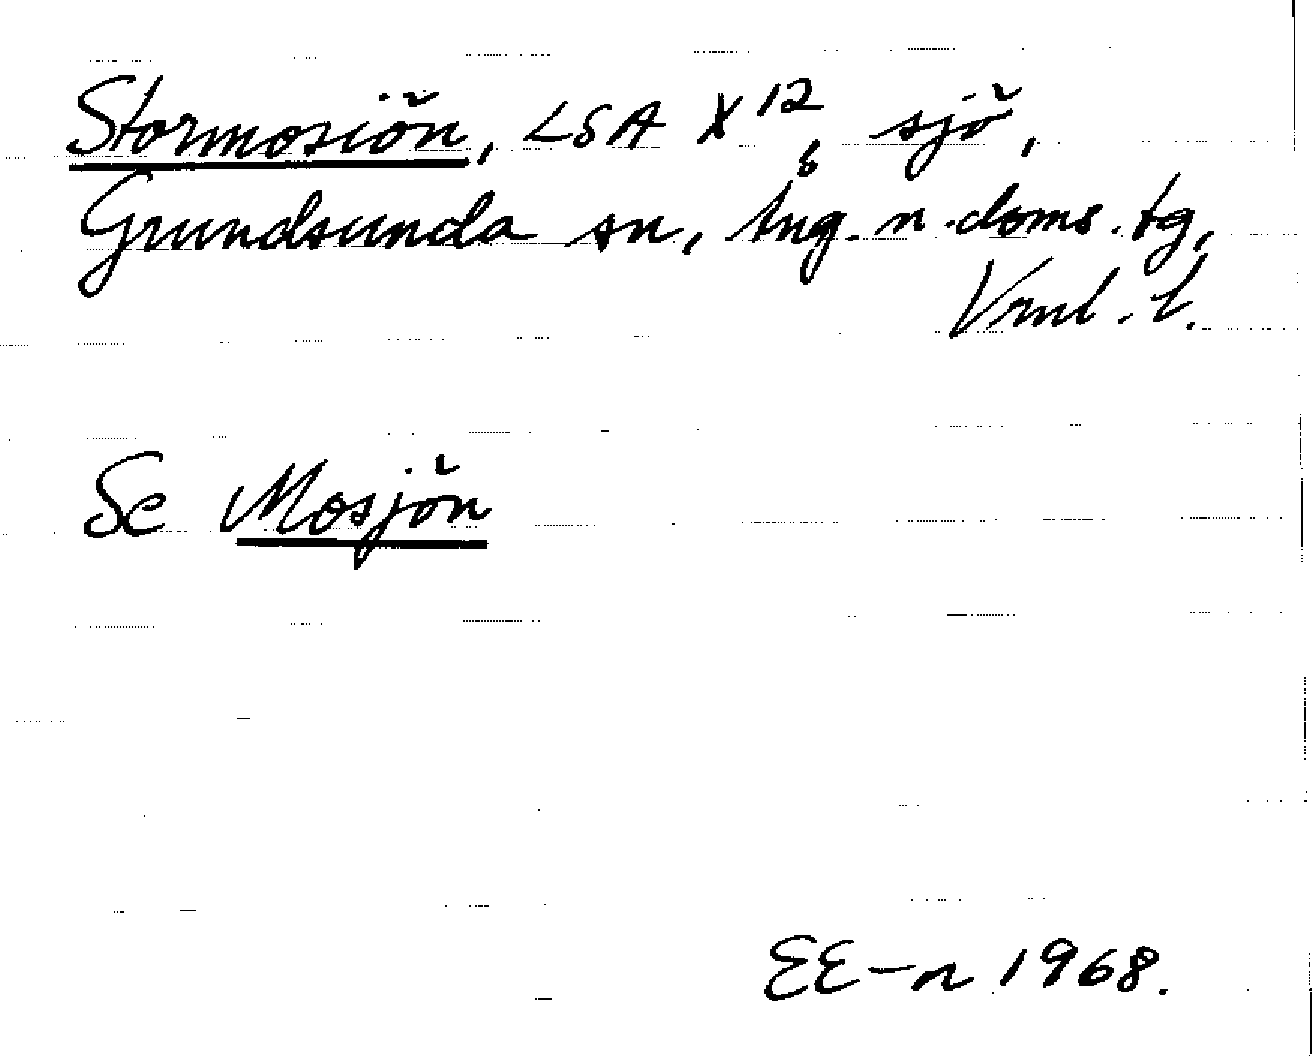 Stormosiön, LSA X 12 6, sjö,
Grundsunda sn, Ång. n. doms. tg,
Vrml. l.
Se Mosjön
EE-n 1968.